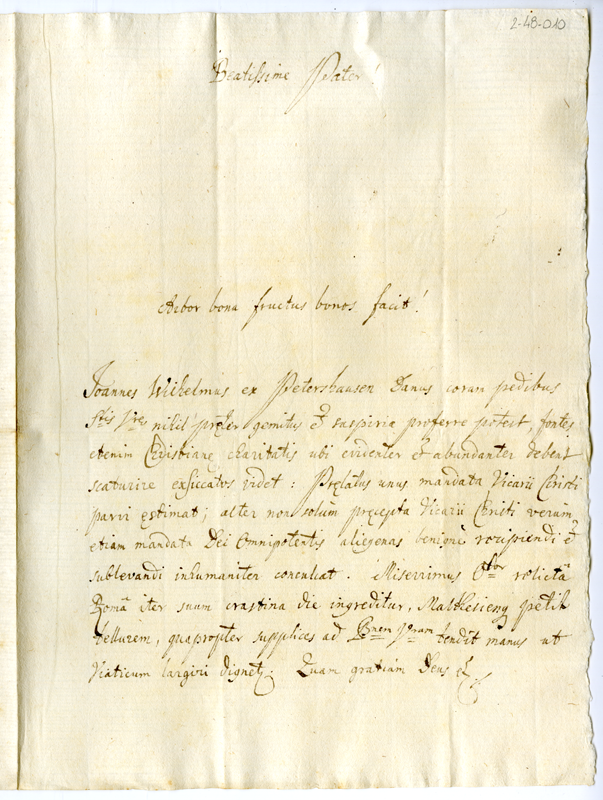 2-48-010
Beatissime Pater!
Arbor bona fructus bonos facit!
Joannes Wilhelmus ex Petershausen Danus coram pedibus
Stis Vrę nihil pręter gemitus et suspiria proferre potest, fontes
etenim Christianę charitatis ubi evidenter et abundanter debent
scaturire exsiccatos videt: Pręlatus unus mandata Vicarii Christi
parvi ęstimat; alter non solum pręcepta Vicarii Christi verum
etiam mandata Dei Omnipotentis alięgenas benignè recipiendi et
sublevandi inhumaniter conculcat. Miserrimus Oror relictâ
Româ iter suum crastina die ingreditur, petit
tellurem, quapropter supplices ad Bnem Vram tendit manus ut
Viaticum largiri dignetr. Quam gratiam Deus